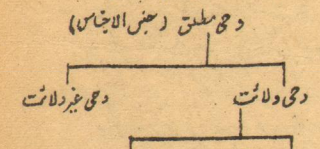 وحی مطلق (جنس الاجناس)
وحی ولائت
وحی غیر ولائت